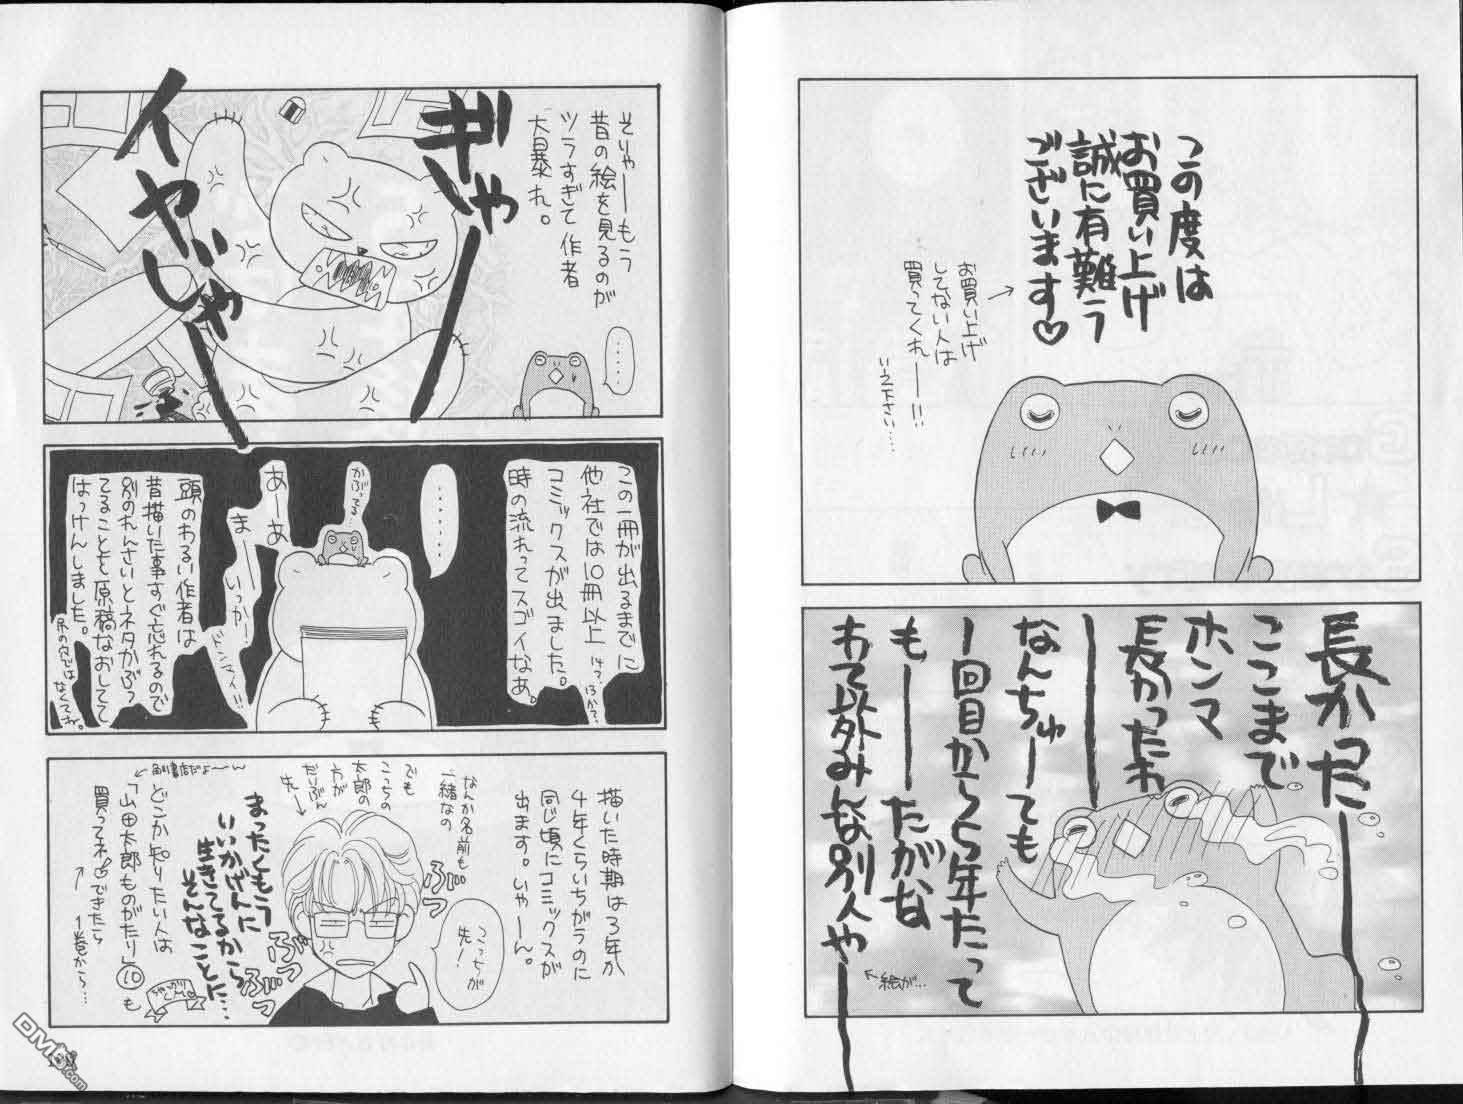 この度は
お買い上げ
誠に有難う
ございます♡
お買い上げ
してない人は
買ってくれーー!!
いえ下さい…
長かったーー
ここまで
ホンマ
長かったわーー
なんちゅーても
1回目から5年たって
もーーたがな
わて以外みんな別人や――
絵が…
そりゃーーもう
昔の絵を見るのが
ツラすぎて作者
大暴れ。
ぎゃーー
イヤじゃーー
……
この一冊が出るまでに
他社では10冊以上
14?13か?
コミックスが出ました。
時の流れってスゴイなあ。
……
かぶってる…
あーーあ
まーーいっかー
ドンマイ!!
頭のわるい作者は
昔描いた事すぐ忘れるので
別のれんさいとネタかぶっ
てることを原稿なおしてて
はっけんしました。
尻の穴では
なくてネ。
描いた時期は3年か
4年くらいちがうのに
同じ頃にコミックスが
出ます。いやーん。
なんか名前も
一緒なの
でも
こっちの
太郎の
方が
だいぶん
先ー
こっちが
先!
ぶっ
ぶっ
ぶっ
まったくもう
いいかげんに
生きてるから
そんなことに…
どこか知りたい人は
「山田太郎ものがたり」⑩も
買ってネ♡できたら
1巻から…
角川書店だよ〜〜ん
DMB.com